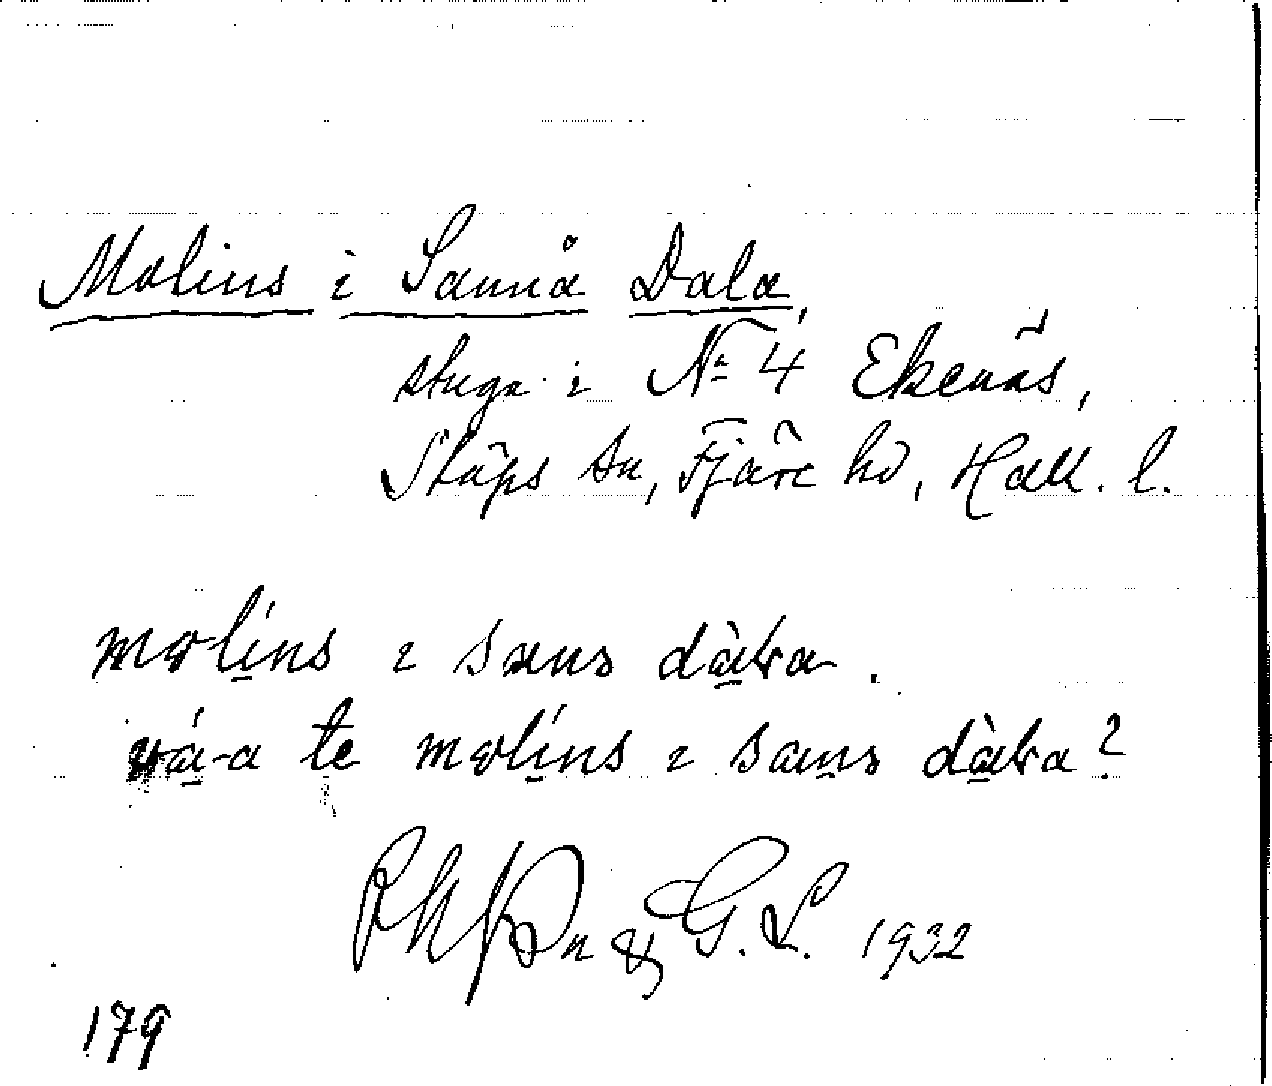 Molins i Sannå Dala,
stuga i № 4 Ekenäs,
Släps sn, Fjäre hd, Hall. l.
molins i sans dàla.
vá-a te molins i sans dàla?
& G. L. 1932
179